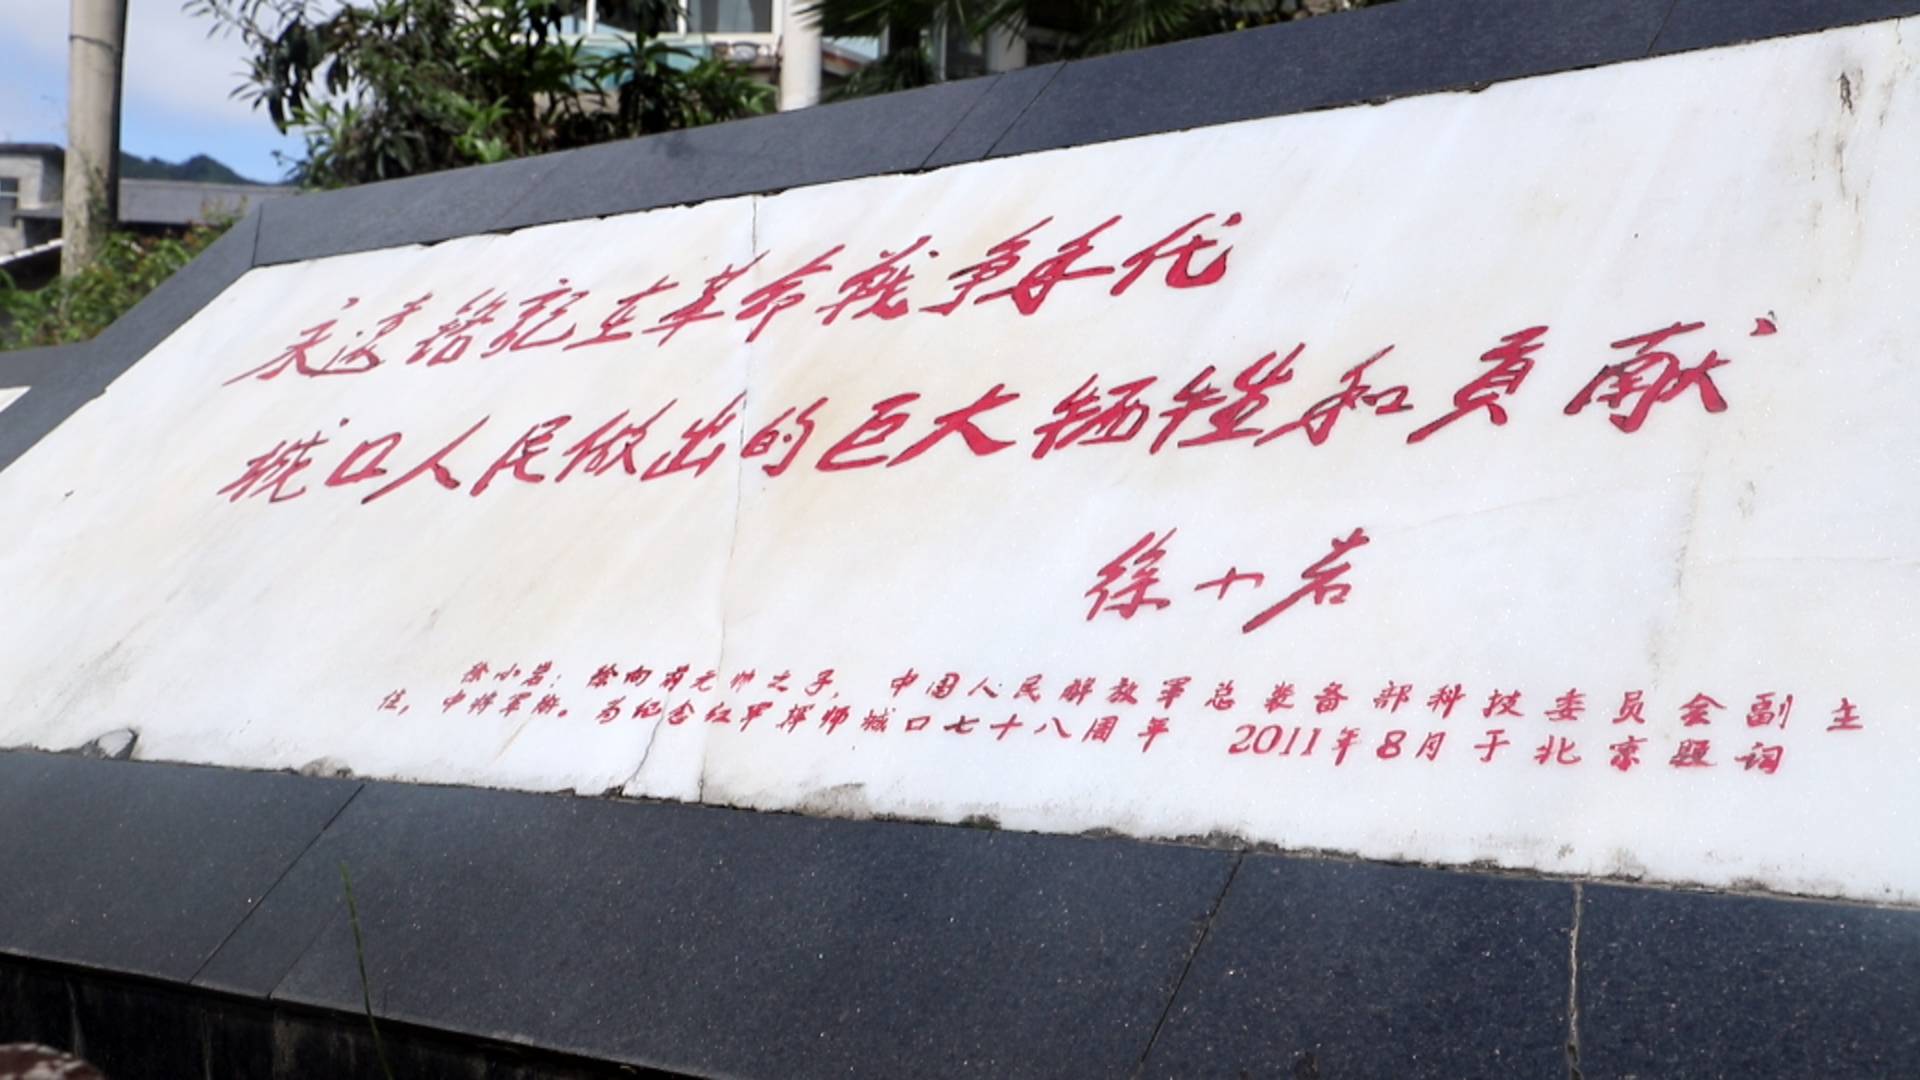 永远铭记在革命战争年代
城口人民做出的巨大牺牲和贡献
徐小岩
徐小岩：徐向前元帅之子，中国人民解放军总装备部科技委员会副主
任，中将军衔。为纪念红军挥师城口七十八周年 2011年8月于北京题词